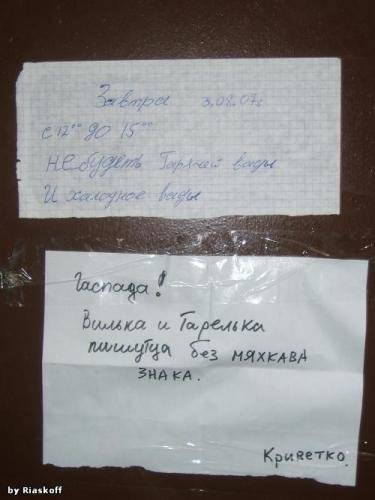 Завтра 3.08.07г
с 12°° до 15°°
не будеть Гарячей вады
и халодное вады
Гаспада!
Вилька и Тарелька
пишутца без мяхкава
знака.
Криветко.
by Riaskoff